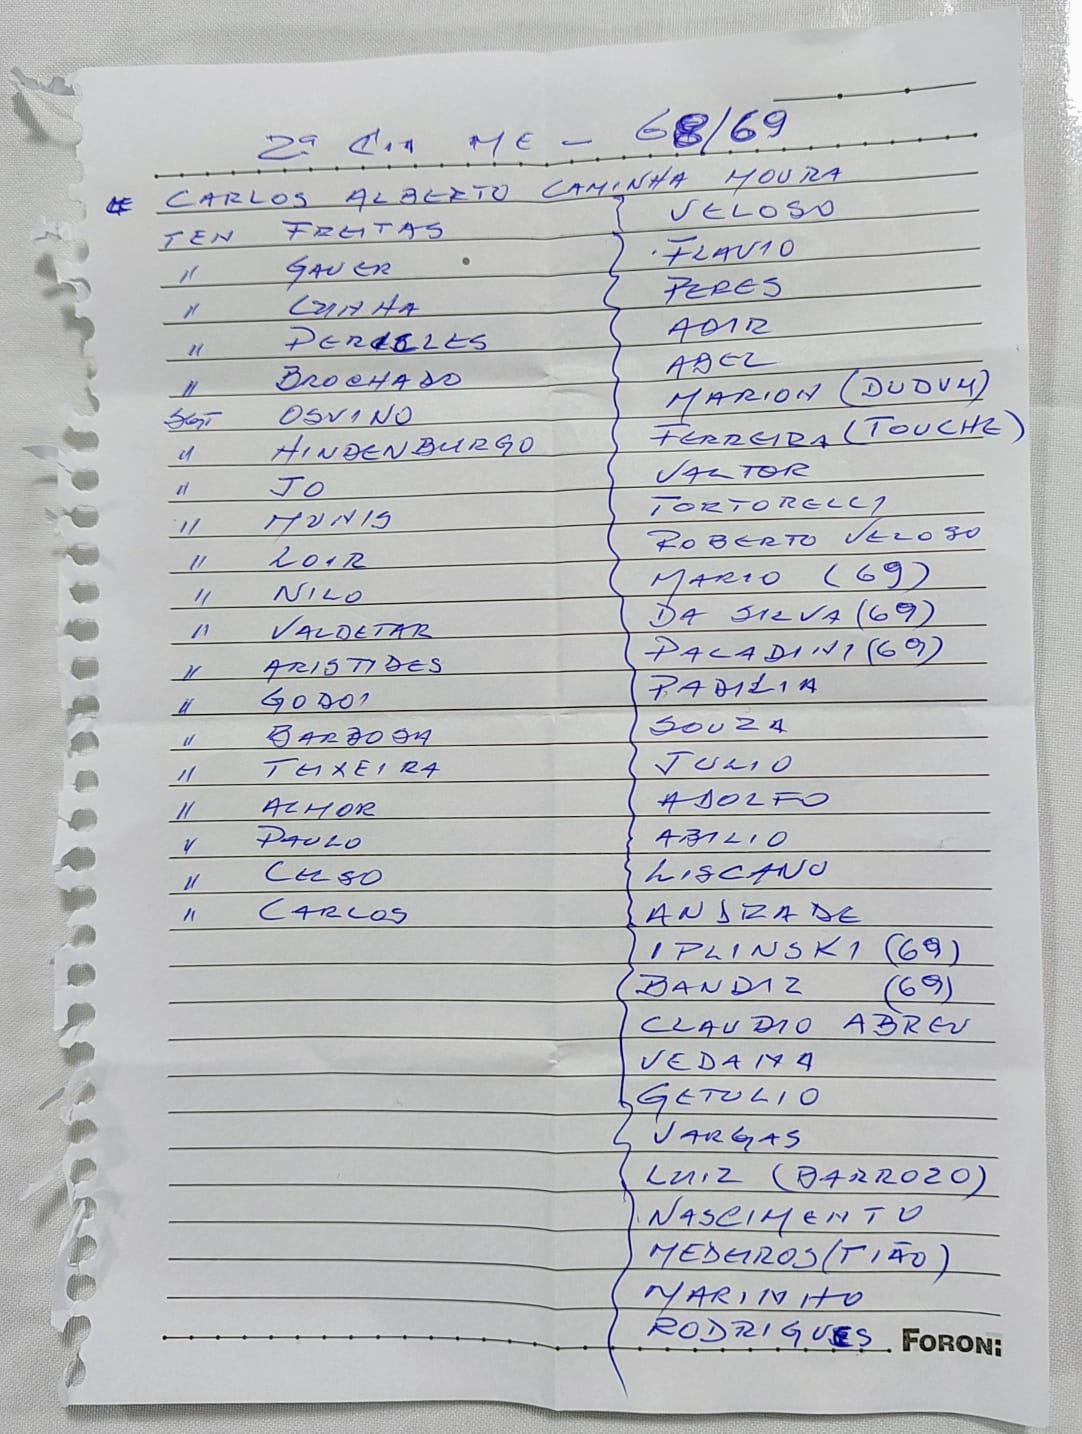 2ª Cia ME - 68/69
CARLOS ALBERTO CAMINHA MOURA
TEN FREITAS
" GAUER
" CUNHA
" PERICLES
" BROCHADO
SGT OSVINO
" HINDENBURGO
" JO
" MUNIS
" LOIR
" NILO
" VALDETAR
" ARISTIDES
" GODOI
" BARBOSA
" TEIXEIRA
" ALMOR
" PAULO
" CELSO
" CARLOS
VELOSO
FLAVIO
PERES
ADIR
ABEL
MARION (DUDUM)
FERREIRA (TOUCHE)
VALTOR
TORTORELLI
ROBERTO VELOSO
MARIO (69)
DA SILVA (69)
PALADINI (69)
PADILIA
SOUZA
JULIO
ADOLFO
ABILIO
LISCANO
ANDRADE
IPLINSKI (69)
BANDIZ (69)
CLAUDIO ABREU
VEDANA
GETULIO
VARGAS
LUIZ (BARROZO)
NASCIMENTO
MEDEIROS (TIÃO)
MARINHO
RODRIGUES
FORONI